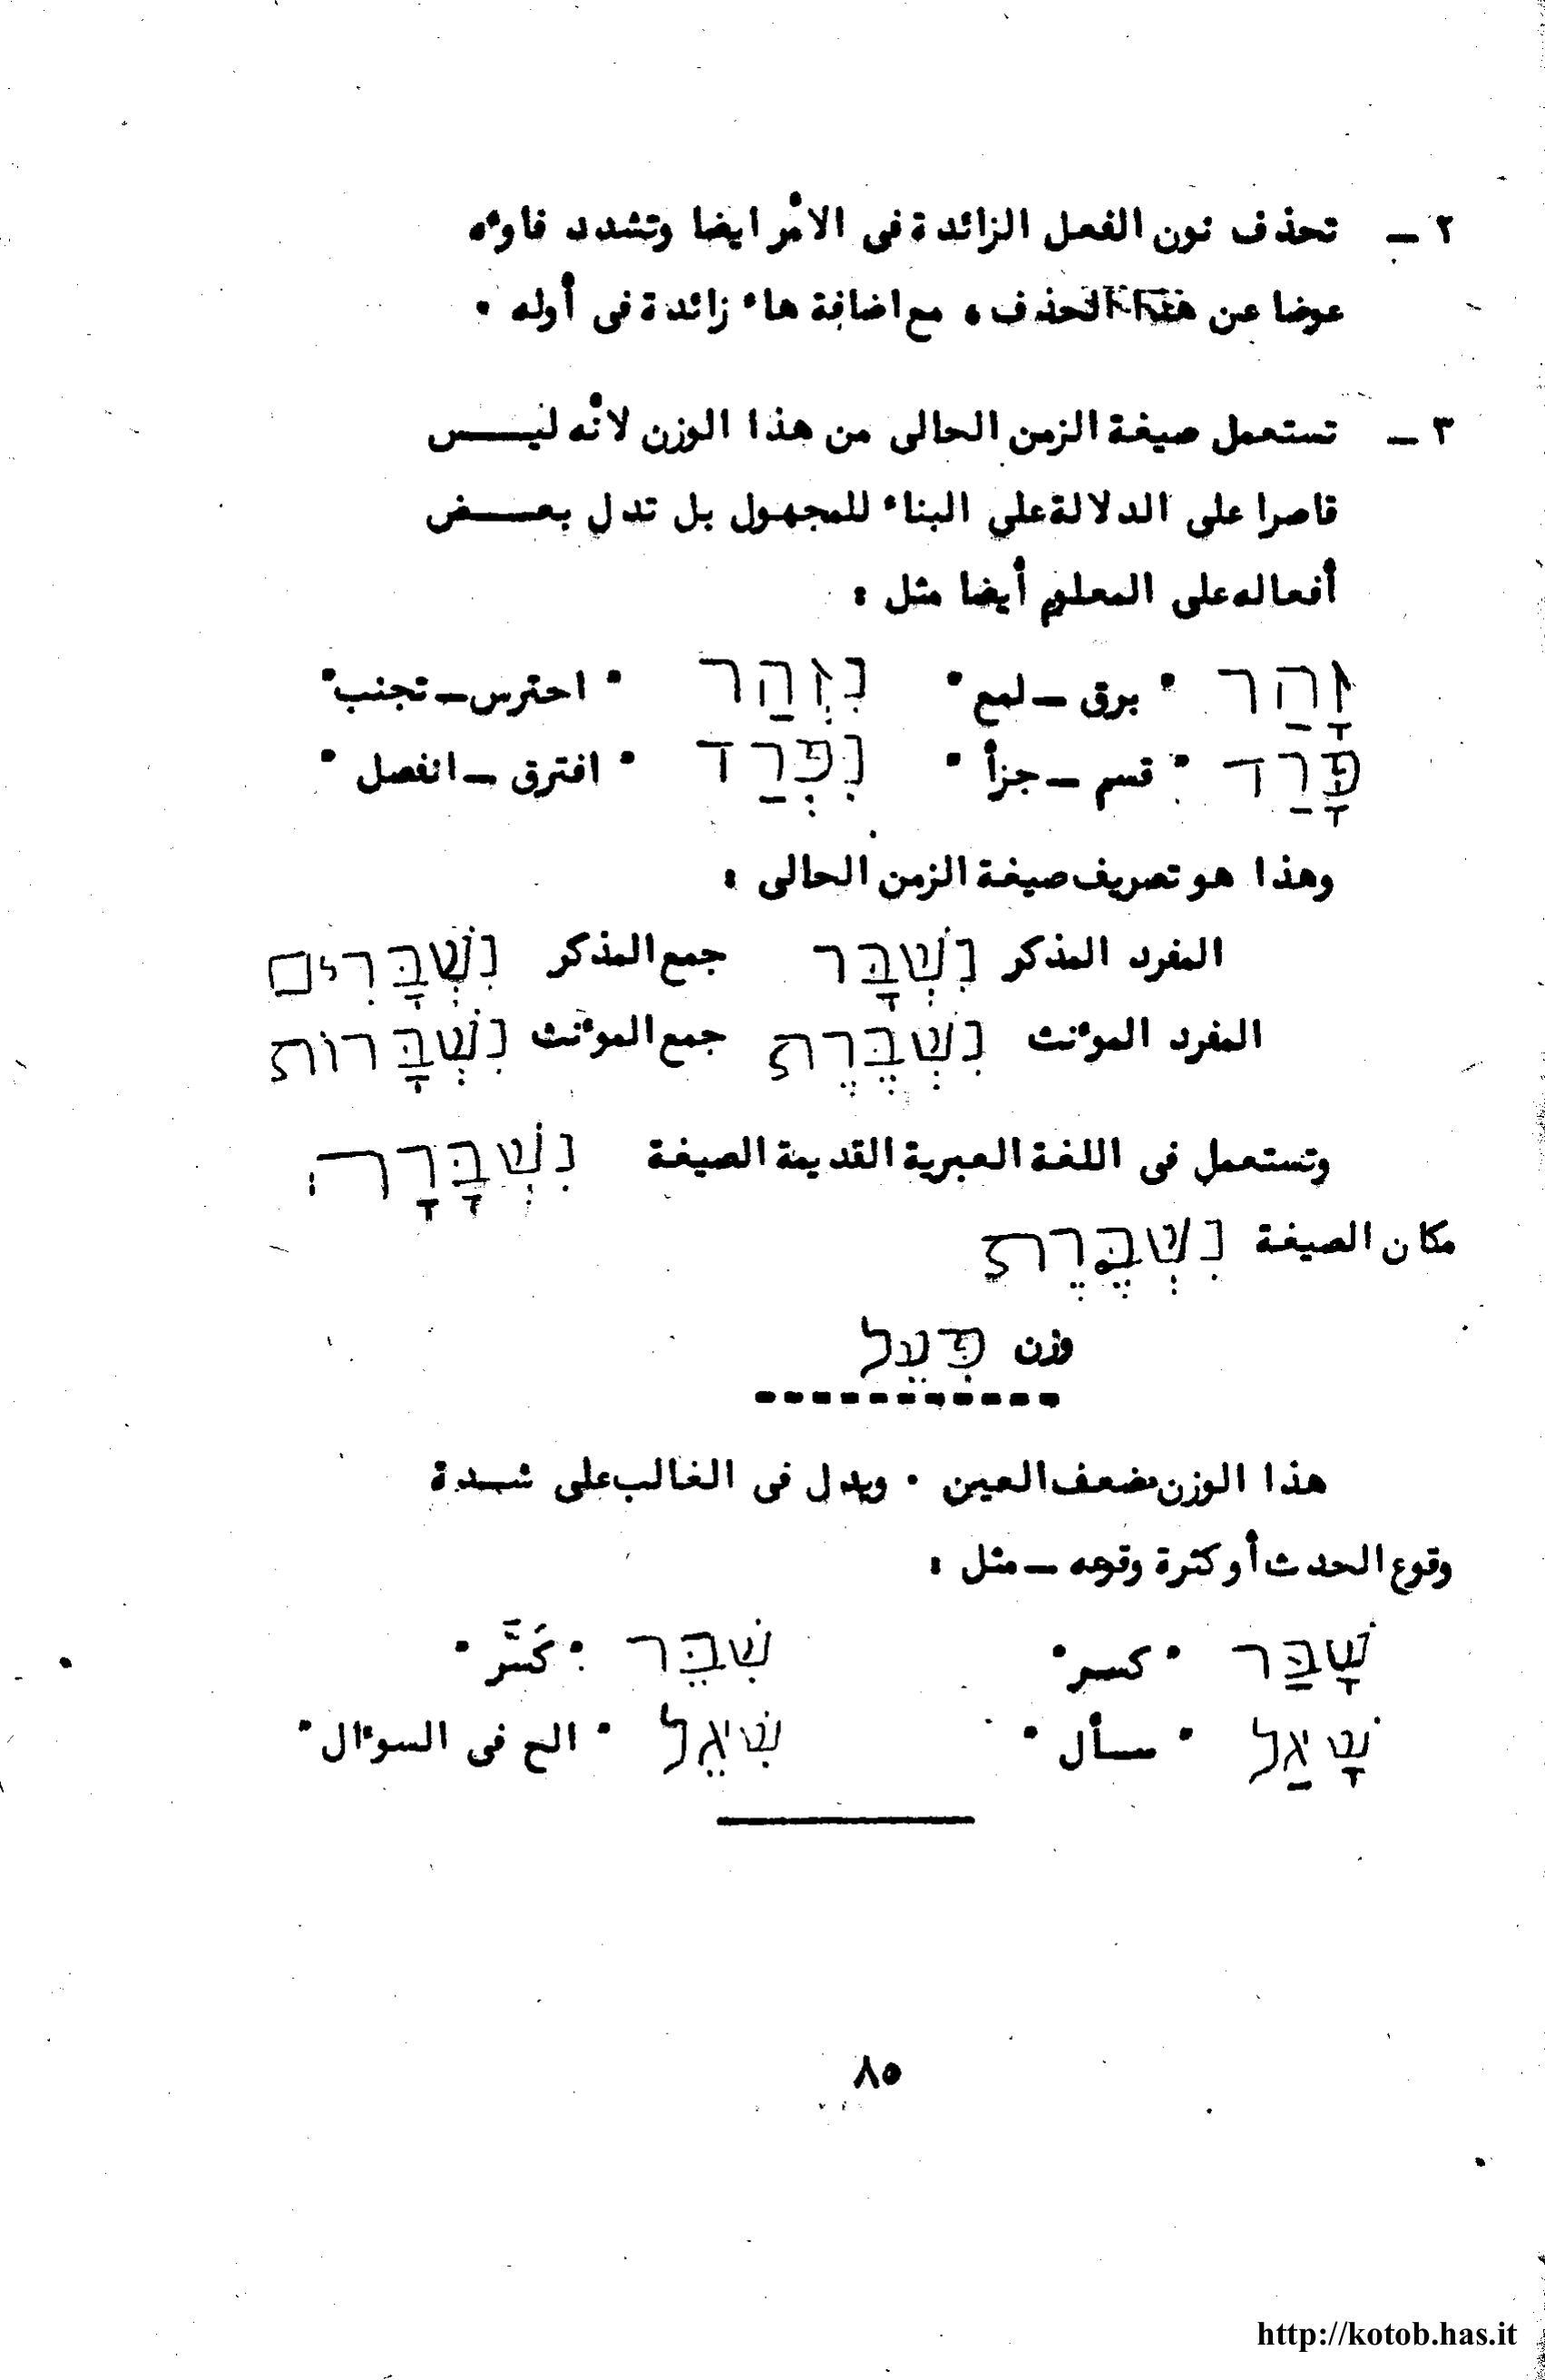 ٢ – تحذف نون الفعل الزائدة فى الأمر ايضا وتشدد فاوٴه
عوضا عن هذا الحذف ، مع اضافة هاء زائدة فى أوله .
٣ – تستعمل صيغة الزمن الحالى من هذا الوزن لأنه ليس
قاصرا على الدلالة على البناء للمجهول بل تدل بعض
أفعاله على المعلوم أيضا مثل :
זָהַר " برق – لمع " נִזְהַר " احترس – تجنب "
פָּרַד " قسم – جزأ " נִפְרַד " افترق – انفصل "
وهذا هو تصريف صيغة الزمن الحالى :
المفرد المذكر נִשְׁבָּר جمع المذكر נִשְׁבָּרִים
المفرد الموٴنث נִשְׁבֶּרֶת جمع الموٴنث נִשְׁבָּרוֹת
وتستعمل فى اللغة العبرية القديمة الصيغة נִשְׁבָּרָה
مكان الصيغة נִשְׁבֶּרֶת
وزن פִּעֵל
هذا الوزن مضعف العين . ويدل فى الغالب على شدة
وقوع الحدث أو كثرة وقوعه – مثل :
שָׁבַּר " كسر " שִׁבֵּר " كَسَّر "
שָׁאַל " سأل " שִׁאֵל " الح فى السوٴال "
٨٥
http://kotob.has.it